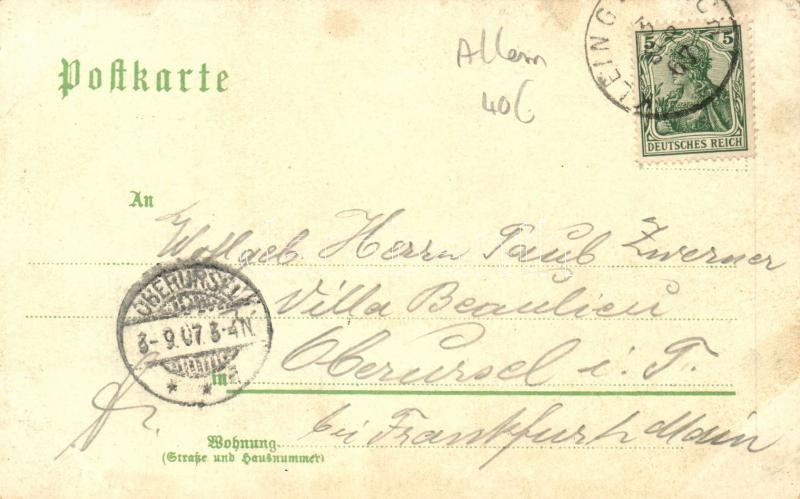 Postkarte
Allem
40€
KLEING
5 5
DEUTSCHES REICH
An
Herrn Paul Zwerner
Villa Beaulieu
OBERURSEL
8-9.07.3-4N
in Oberursel i. T.
bei Frankfurt Main
Wohnung
(Straße und Hausnummer)